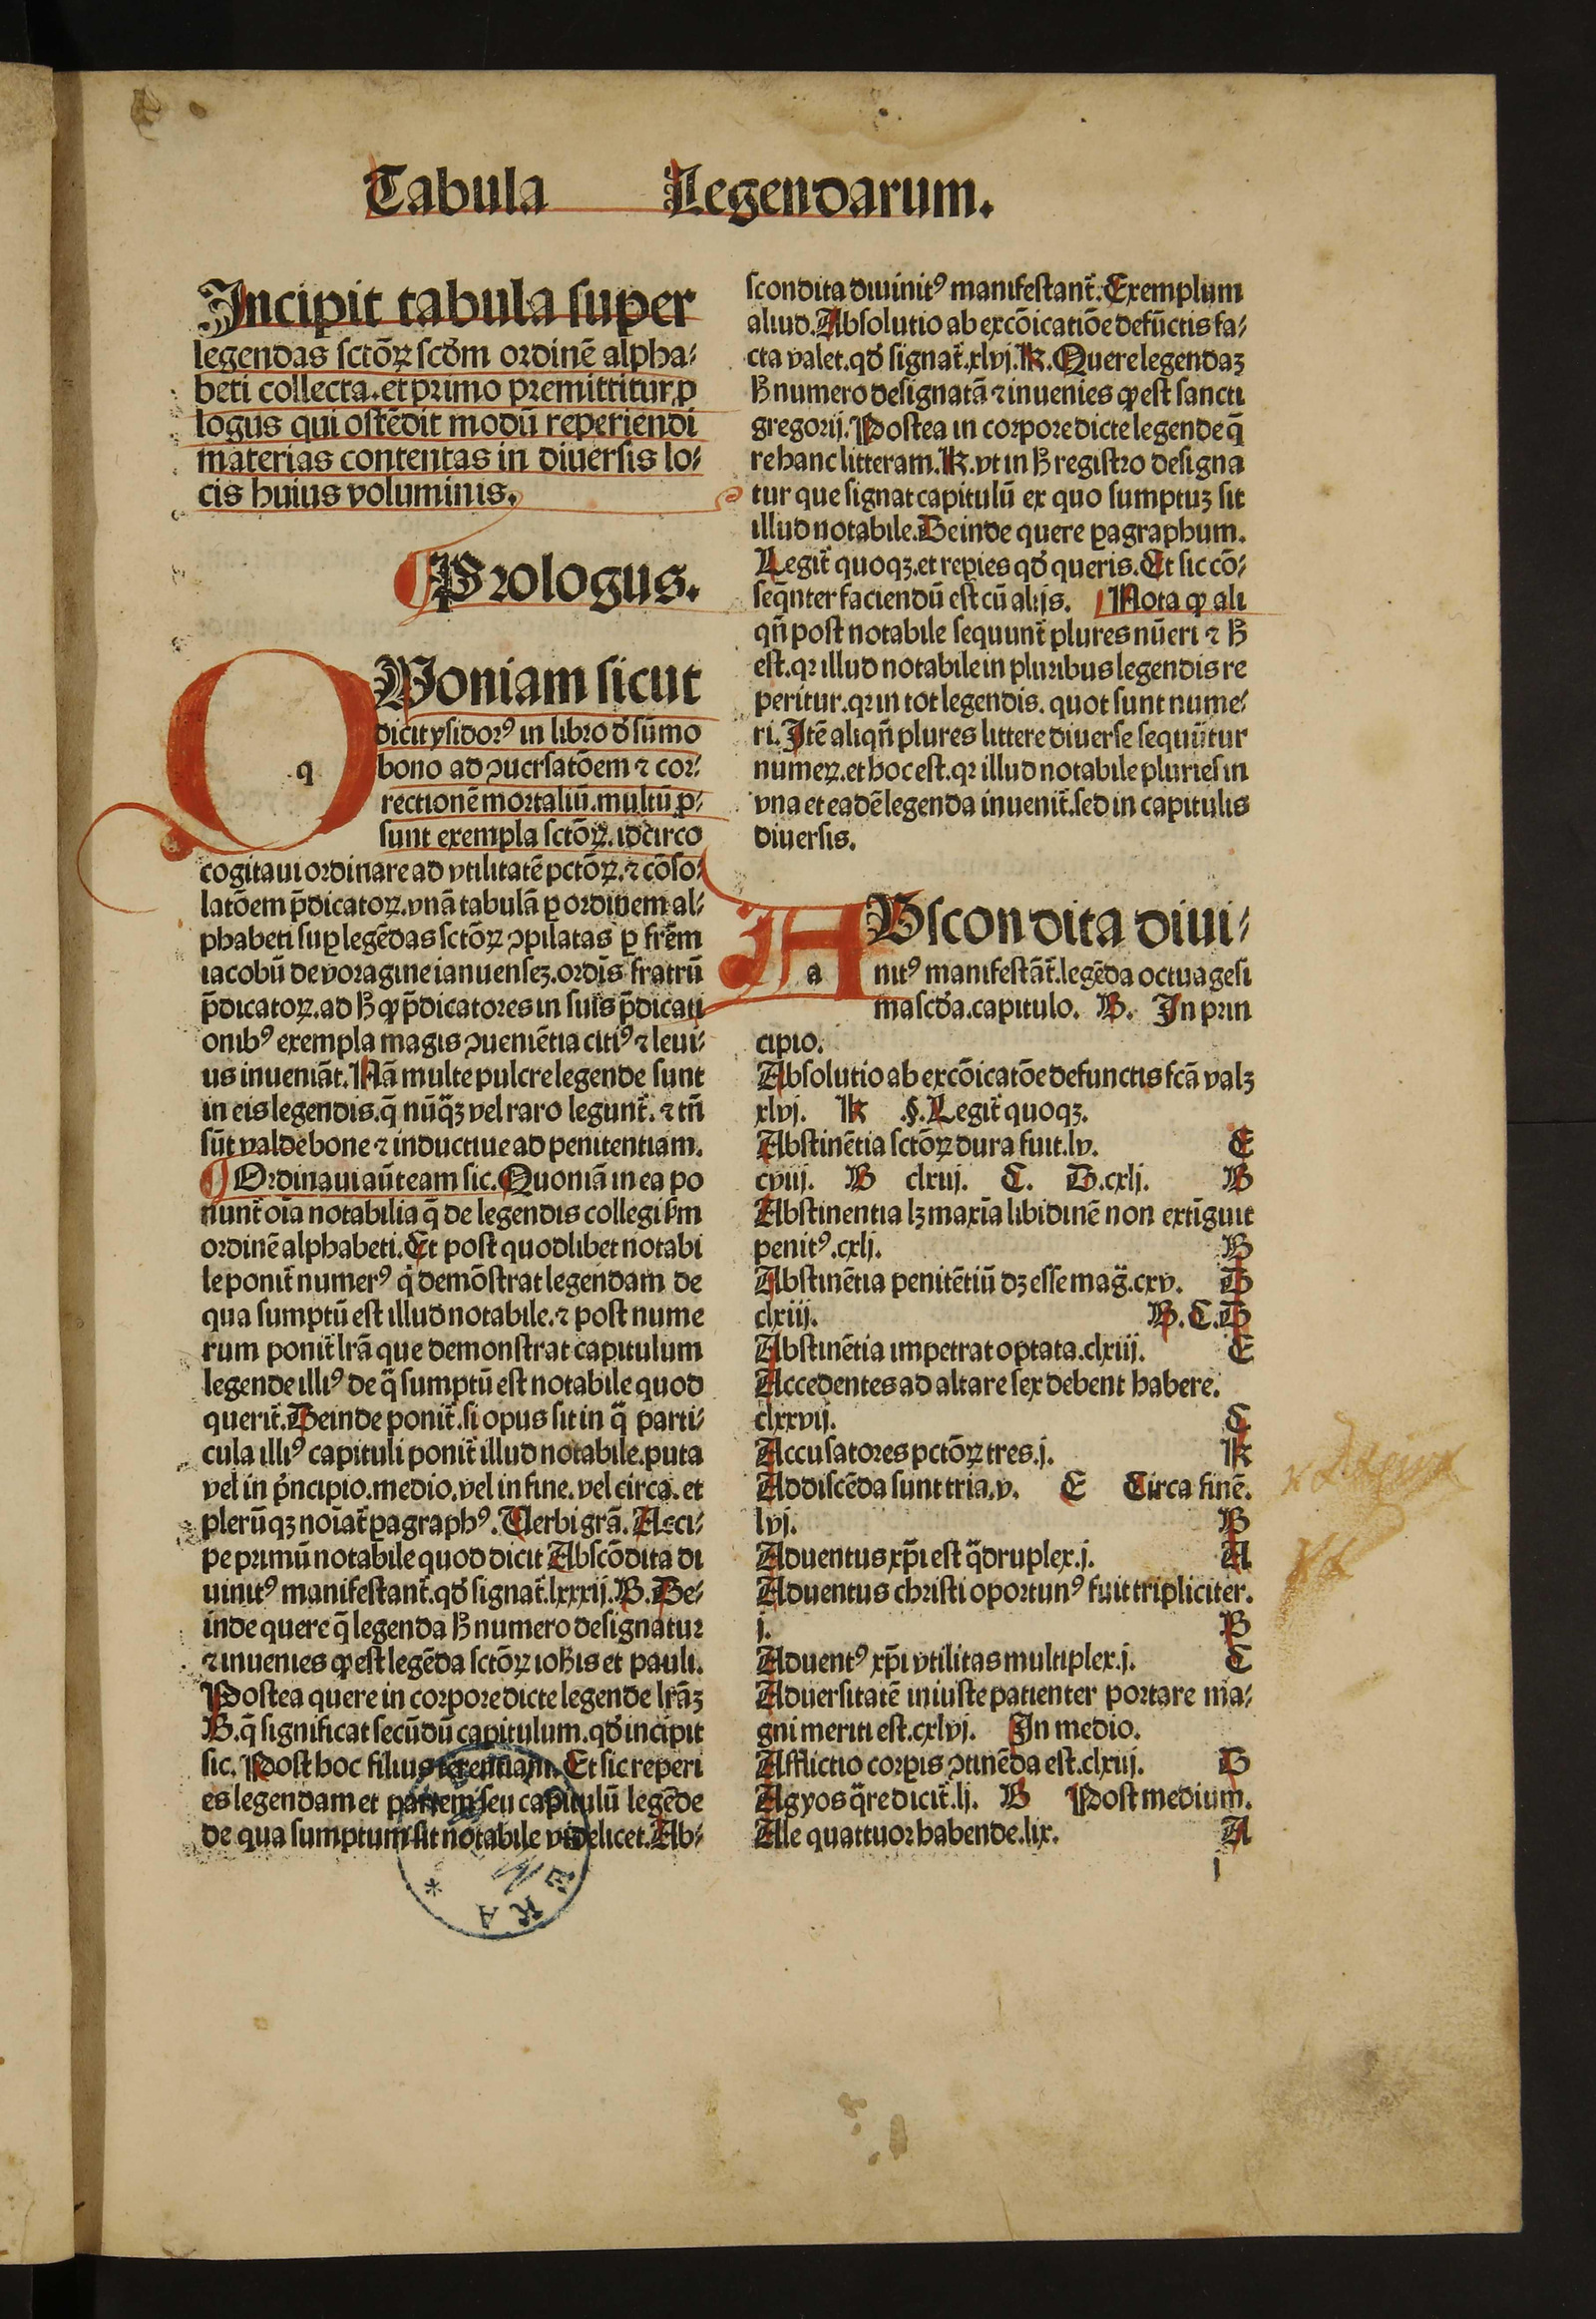 Tabula Legendarum.
Incipit tabula super
legendas sctõꝝ scđm ordinẽ alpha⸗
beti collecta. et primo premittitur ꝓ
logus qui ostẽdit modũ reperiendi
materias contentas in diuersis lo⸗
cis huius voluminis.
¶ Prologus.
QUoniam sicut
dicit ysidorꝰ in libro đ sũmo
bono ad ↄuersatõem ⁊ cor⸗
rectionẽ mortaliũ. multũ ꝓ⸗
sunt exempla sctõꝝ. idcirco
cogitaui ordinare ad vtilitatẽ pctõꝝ. ⁊ cõso⸗
latõem p̃dicatoꝝ. vnã tabulã ꝑ ordinem al⸗
phabeti suꝑ legẽdas sctõꝝ ↄpilatas ꝑ frẽm
iacobũ de voragine ianuenseꝫ. ordĩs fratrũ
p̃dicatoꝝ. ad ħ ꝙ p̃dicatores in suis p̃dicati
onibꝰ exempla magis ↄueniẽtia citiꝰ ⁊ leui⸗
us inueniãt. Nã multe pulcre legende sunt
in eis legendis. q̃ nũq̃ꝫ vel raro legunt̃. ⁊ tñ
sũt valde bone ⁊ inductiue ad penitentiam.
¶ Ordinaui aũt eam sic. Quoniã in ea po
nunt̃ oĩa notabilia q̃ de legendis collegi ẜm
ordinẽ alphabeti. Et post quodlibet notabi
le ponit̃ numerꝰ q̇ demõstrat legendam de
qua sumptũ est illud notabile. ⁊ post nume
rum ponit̃ lrã que demonstrat capitulum
legende illiꝰ de q̃ sumptũ est notabile quod
querit̃. Deinde ponit̃. si opus sit in q̃ parti⸗
cula illiꝰ capituli ponit̃ illud notabile. puta
vel in p̓ncipio. medio. vel in fine. vel circa. et
plerũqꝫ noĩat̃ ꝑagraphꝰ. Uerbi grã. Acci⸗
pe primũ notabile quod dicit Abscõdita di
uinitꝰ manifestant̃. qđ signat̃. lxxxij. B. De⸗
inde quere q̃ legenda ħ numero designatur
⁊ inuenies ꝙ est legẽda sctõꝝ iohis et pauli.
Postea quere in corpore dicte legende lrãꝫ
B. q̃ significat secũdũ capitulum. qđ incipit
sic. Post hoc filius terentiani. Et sic reperi
es legendam et partem seu capitulũ legẽde
de qua sumptum sit notabile videlicet. Ab⸗
scondita diuinitꝰ manifestant̃. Exemplum
aliud. Absolutio ab excõicatiõe defũctis fa⸗
cta valet. qđ signat̃. xlvj. K. Quere legendaꝫ
ħ numero designatã ⁊ inuenies ꝙ est sancti
gregorij. Postea in corpore dicte legende q̃
re hanc litteram. K. vt in ħ registro designa
tur que signat capitulũ ex quo sumptuꝫ sit
illud notabile. Deinde quere ꝑagraphum.
Legit̃ quoqꝫ. et reꝑies qđ queris. Et sic cõ⸗
seq̃nter faciendũ est cũ alijs. ¶ Nota ꝙ ali
qñ post notabile sequunt̃ plures nũeri ⁊ ħ
est. qꝛ illud notabile in pluribus legendis re
peritur. qꝛ in tot legendis. quot sunt nume⸗
ri. Itẽ aliqñ plures littere diuerse sequũtur
numeꝝ. et hoc est. qꝛ illud notabile pluries in
vna et eadẽ legenda inuenit̃. sed in capitulis
diuersis.
ABscondita diui⸗
nitꝰ manifestãt̃. legẽda octuagesi
ma scđa. capitulo. B. In prin
cipio.
Absolutio ab excõicatõe defunctis fcã valꝫ
xlvj. K §. Legit̃ quoqꝫ.
Abstinẽtia sctõꝝ dura fuit. lv. E
cviij. B clxiij. C. D. cxlj. B
Abstinentia lꝫ maxĩa libidinẽ non extĩguit
penitꝰ. cxlj. B
Abstinẽtia penitẽtiũ dꝫ esse mag̃. cxv. D
clxiij. B. C. D
Abstinẽtia impetrat optata. clxiij. E
Accedentes ad altare sex debent habere.
clxxvij. C
Accusatores pctõꝝ tres. j. K
Addiscẽda sunt tria. v. E Circa finẽ.
lvj. B
Aduentus xp̃i est q̃druplex. j. A
Aduentus christi oportunꝰ fuit tripliciter.
j. B
Aduentꝰ xp̃i vtilitas multiplex. j. C
Aduersitatẽ iniuste patienter portare ma⸗
gni meriti est. cxlvj. In medio.
Afflictio corꝑis ↄtinẽda est. clxiij. D
Agyos q̃re dicit̃. lj. B Post medium.
Ale quattuor habende. lix. A
j